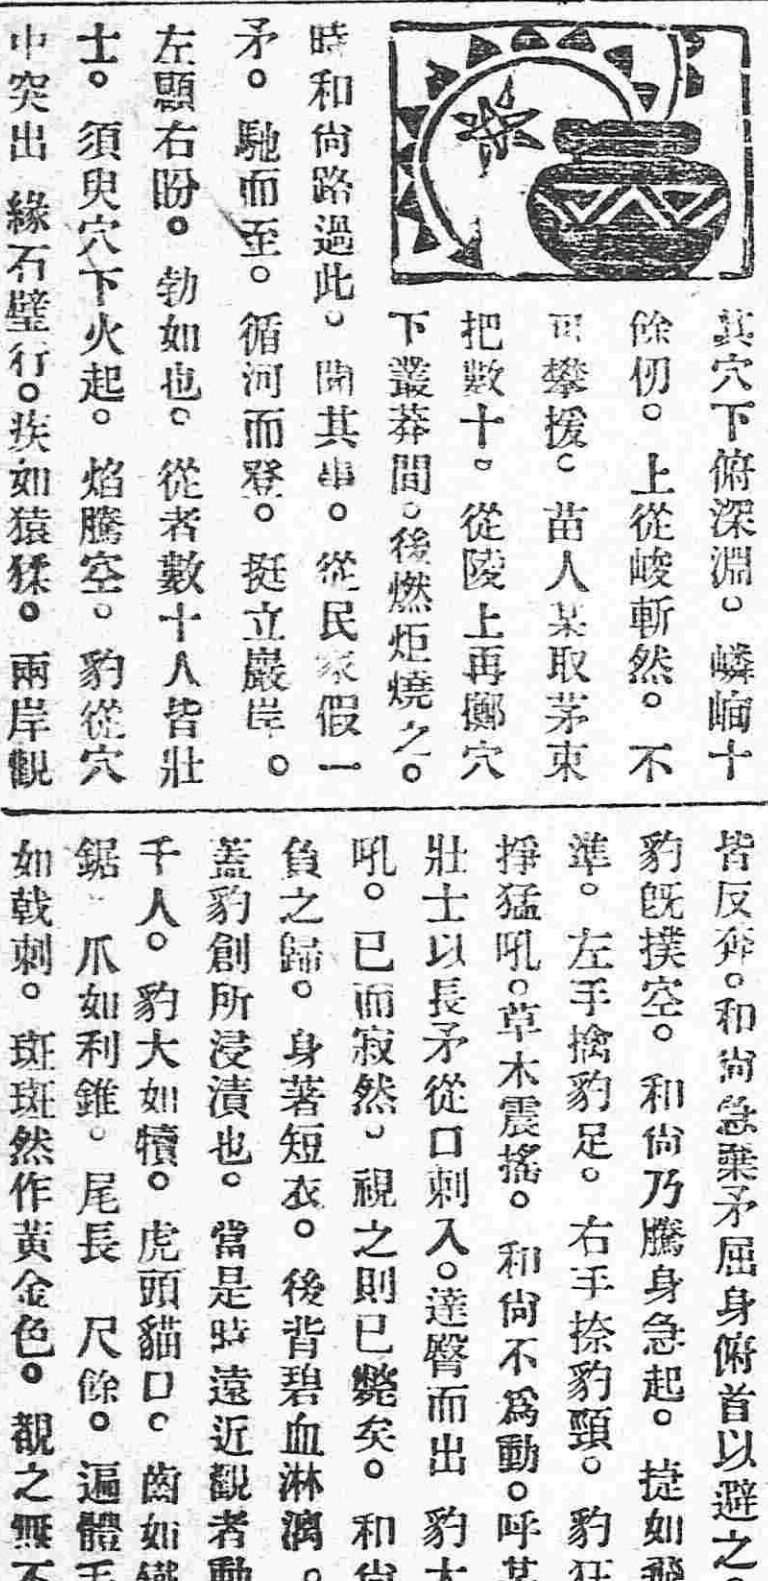 其穴下俯深淵。嶙峋十
餘仞。上從峻斬然。不
可攀援。苗人某取茅束
把數十。從陵上再擲穴
下叢莽間。後燃炬燒之。
時和尙路過此。聞其事。從民家假一
矛。馳而至。循河而登。挺立巖岸。
左顧右盼。勃如也。從者數十人皆壯
士。須臾穴下火起。焰騰空。豹從穴
中突出 緣石壁行。疾如猿猱。兩岸觀
皆反奔。和尙急棄矛屈身俯首以避之。
豹旣撲空。和尙乃騰身急起。捷如飛
準。左手擒豹足。右手捺豹頸。豹狂
掙猛吼。草木震搖。和尙不爲動。呼某
壯士以長矛從口刺入。達臀而出 豹大
吼。已而寂然。視之則已斃矣。和尙
負之歸。身著短衣。後背碧血淋漓。
蓋豹創所浸漬也。當是時遠近觀者動
千人。豹大如犢。虎頭貓口。齒如鐵
鋸 爪如利錐。尾長 尺餘。遍體毛
如戟刺。斑斑然作黃金色。觀之無不